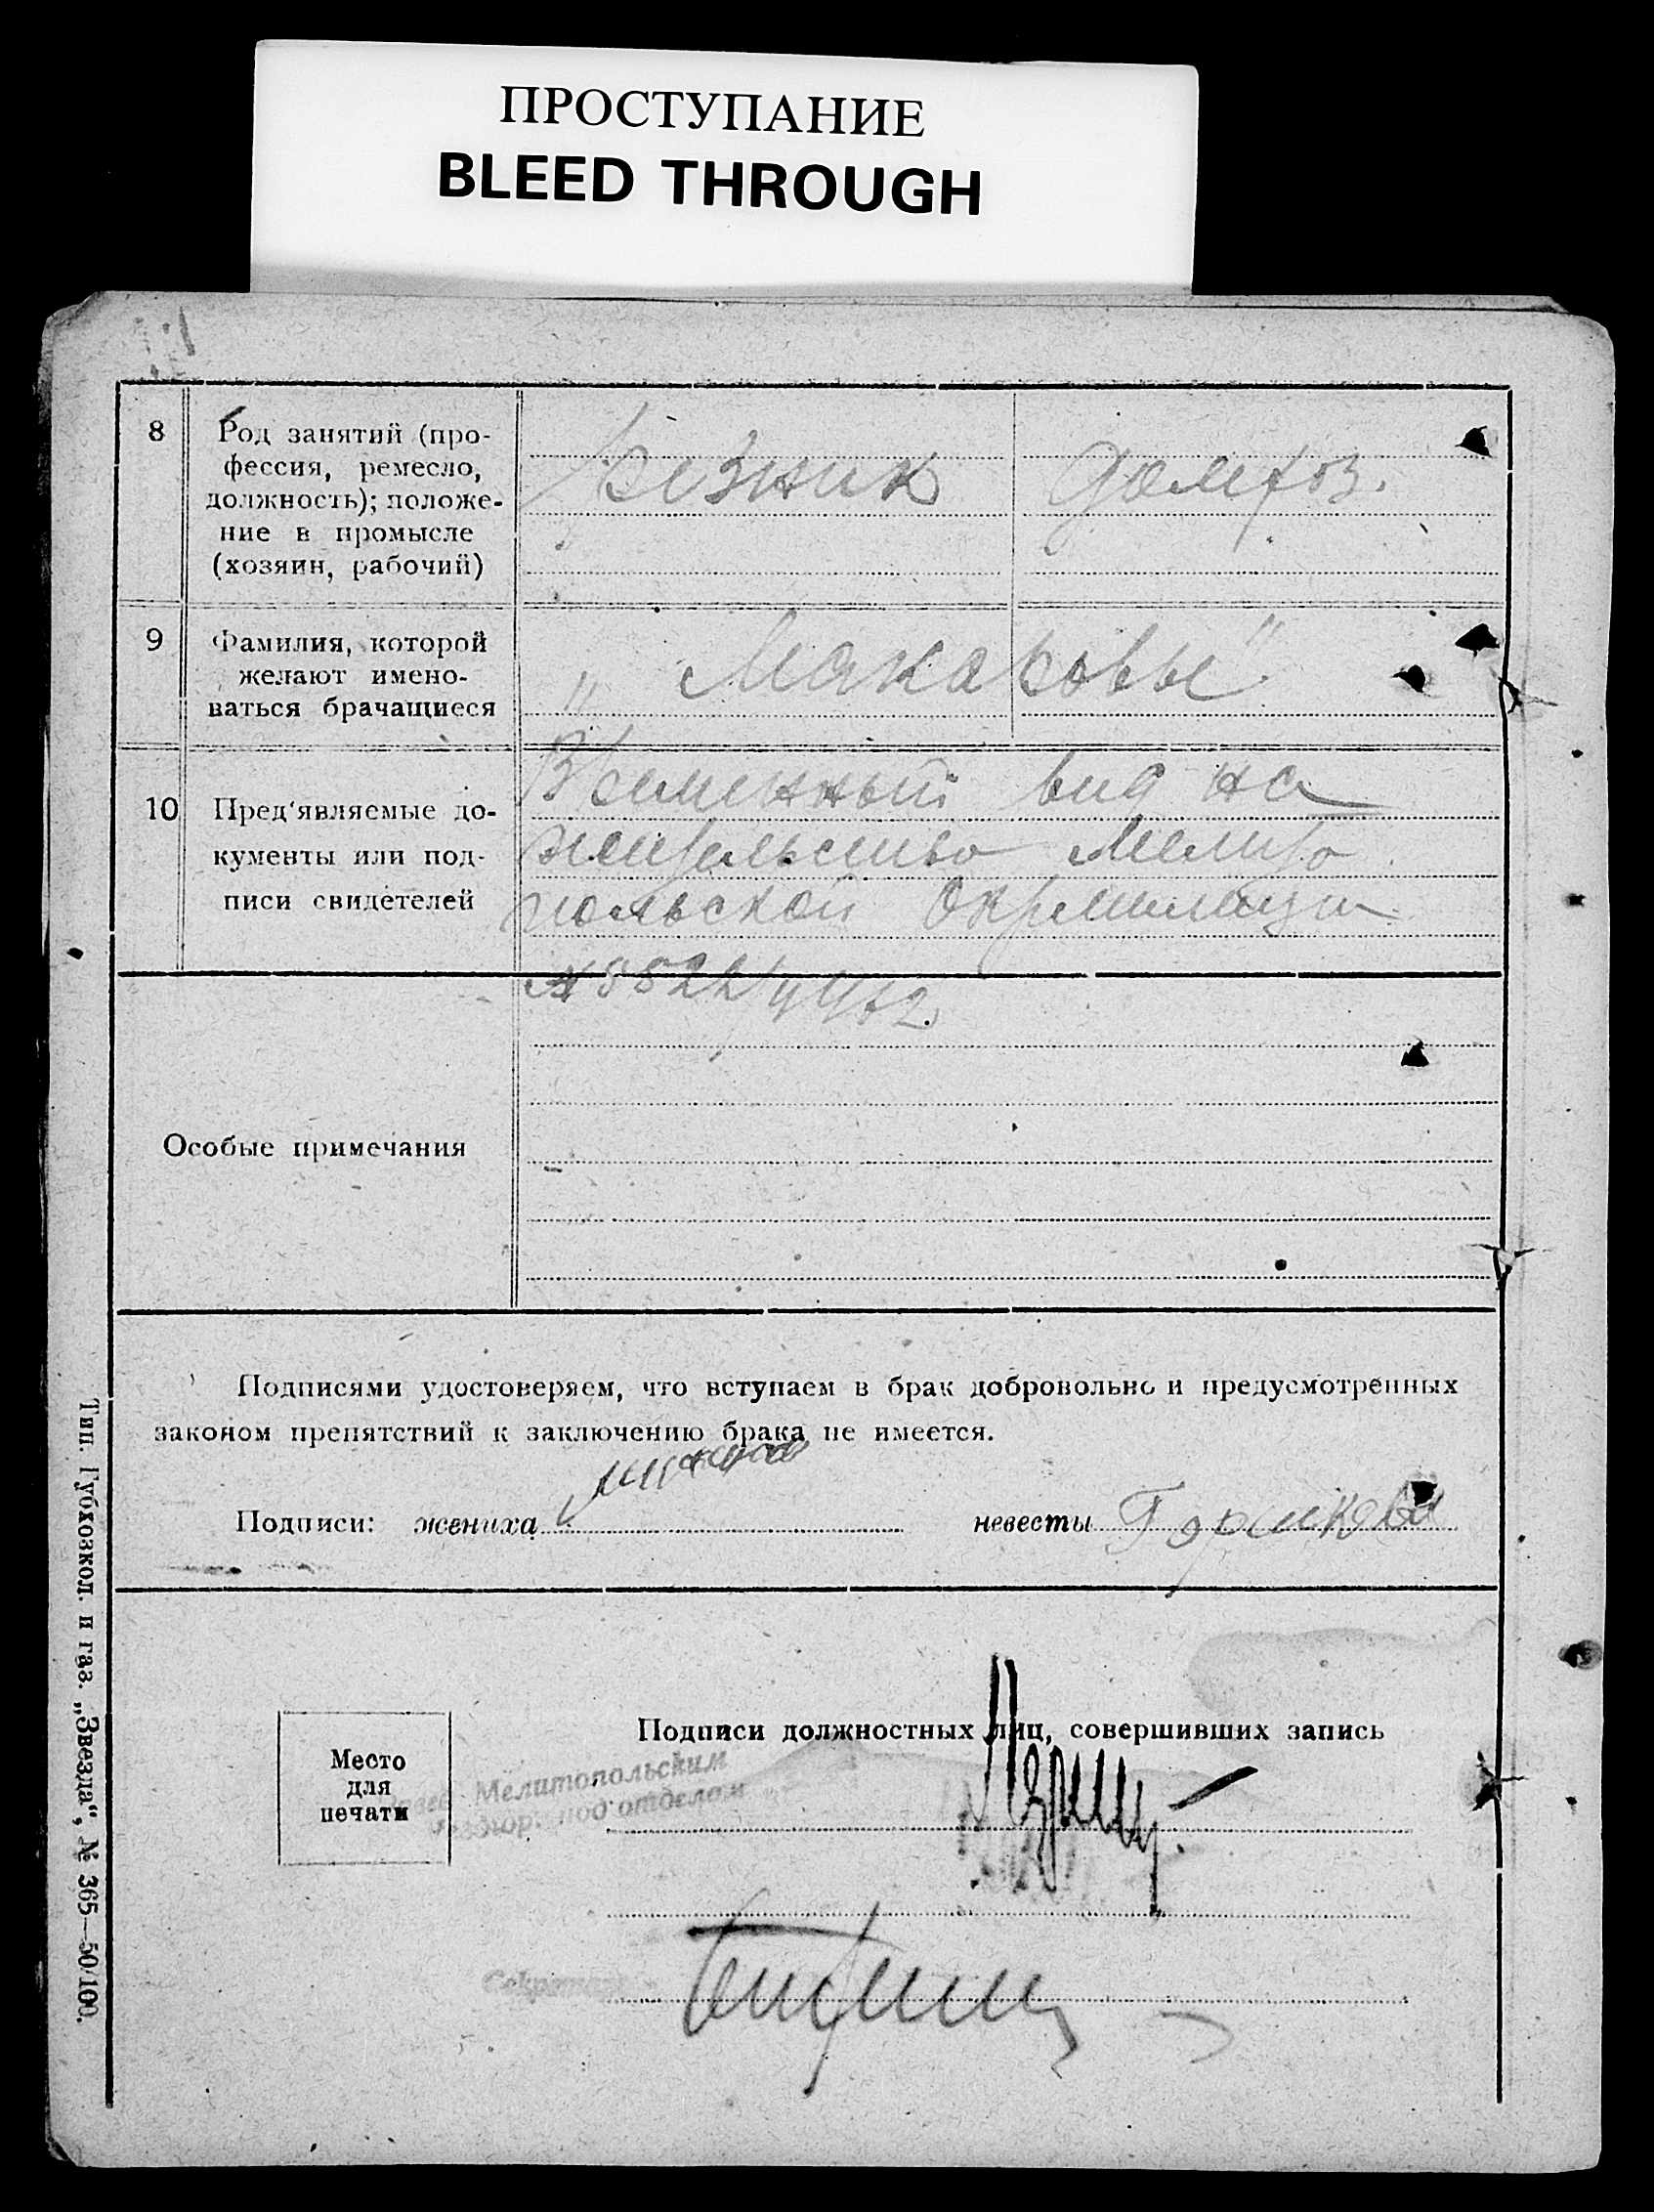 ПРОСТУПАНИЕ
BLEED THROUGH
8
Род занятий (про-
фессия, ремесло,
должность); положе-
ние в промысле
(хозяин, рабочий)
резник
домхоз.
9
Фамилия, которой
желают имено-
ваться брачащиеся
„ Макаровы"
10
Пред'являемые до-
кументы или под-
писи свидетелей
Временный вид на
жительство Мелито
польской Окрмилиции
Особые примечания
Подписями удостоверяем, что вступаем в брак добровольно и предусмотренных
законом препятствий к заключению брака не имеется.
Подписи: жениха
невесты
Подписи должностных лиц, совершивших запись
Место
для
печати
Мелитопольским
под отделом
Секретарь
Тип. Губхозкол. и газ. „Звезда", № 365—50/100.